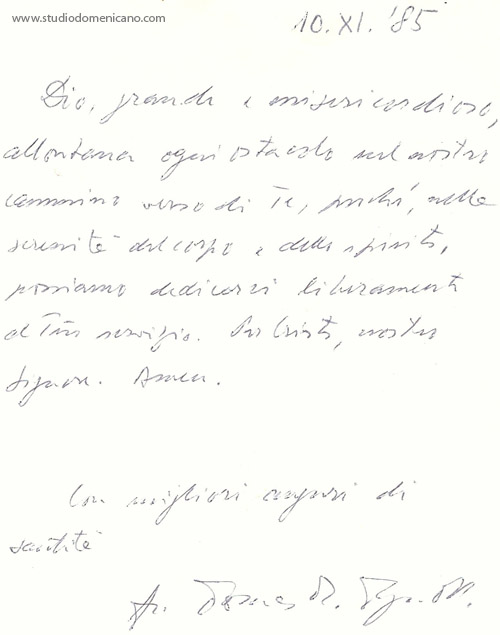 www.studiodomenicano.com
10. XI. '85
Dio, grande e misericordioso,
allontana ogni ostacolo nel nostro
cammino verso di Te, perché, nella
serenità del corpo e dello spirito,
possiamo dedicarci liberamente
al Tuo servizio. Per Cristo, nostro
Signore. Amen.
Con migliori auguri di
santità
fr. Tomas M. Tyn OP.